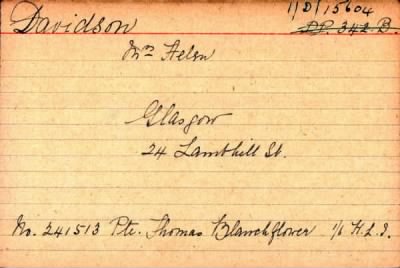 1/D/15604
Davidson DP. 342. B.
Mrs Helen
Glasgow
24 Lambhill St.
No. 241513 Pte. Thomas Blanchflower 1/6 H.L.I.